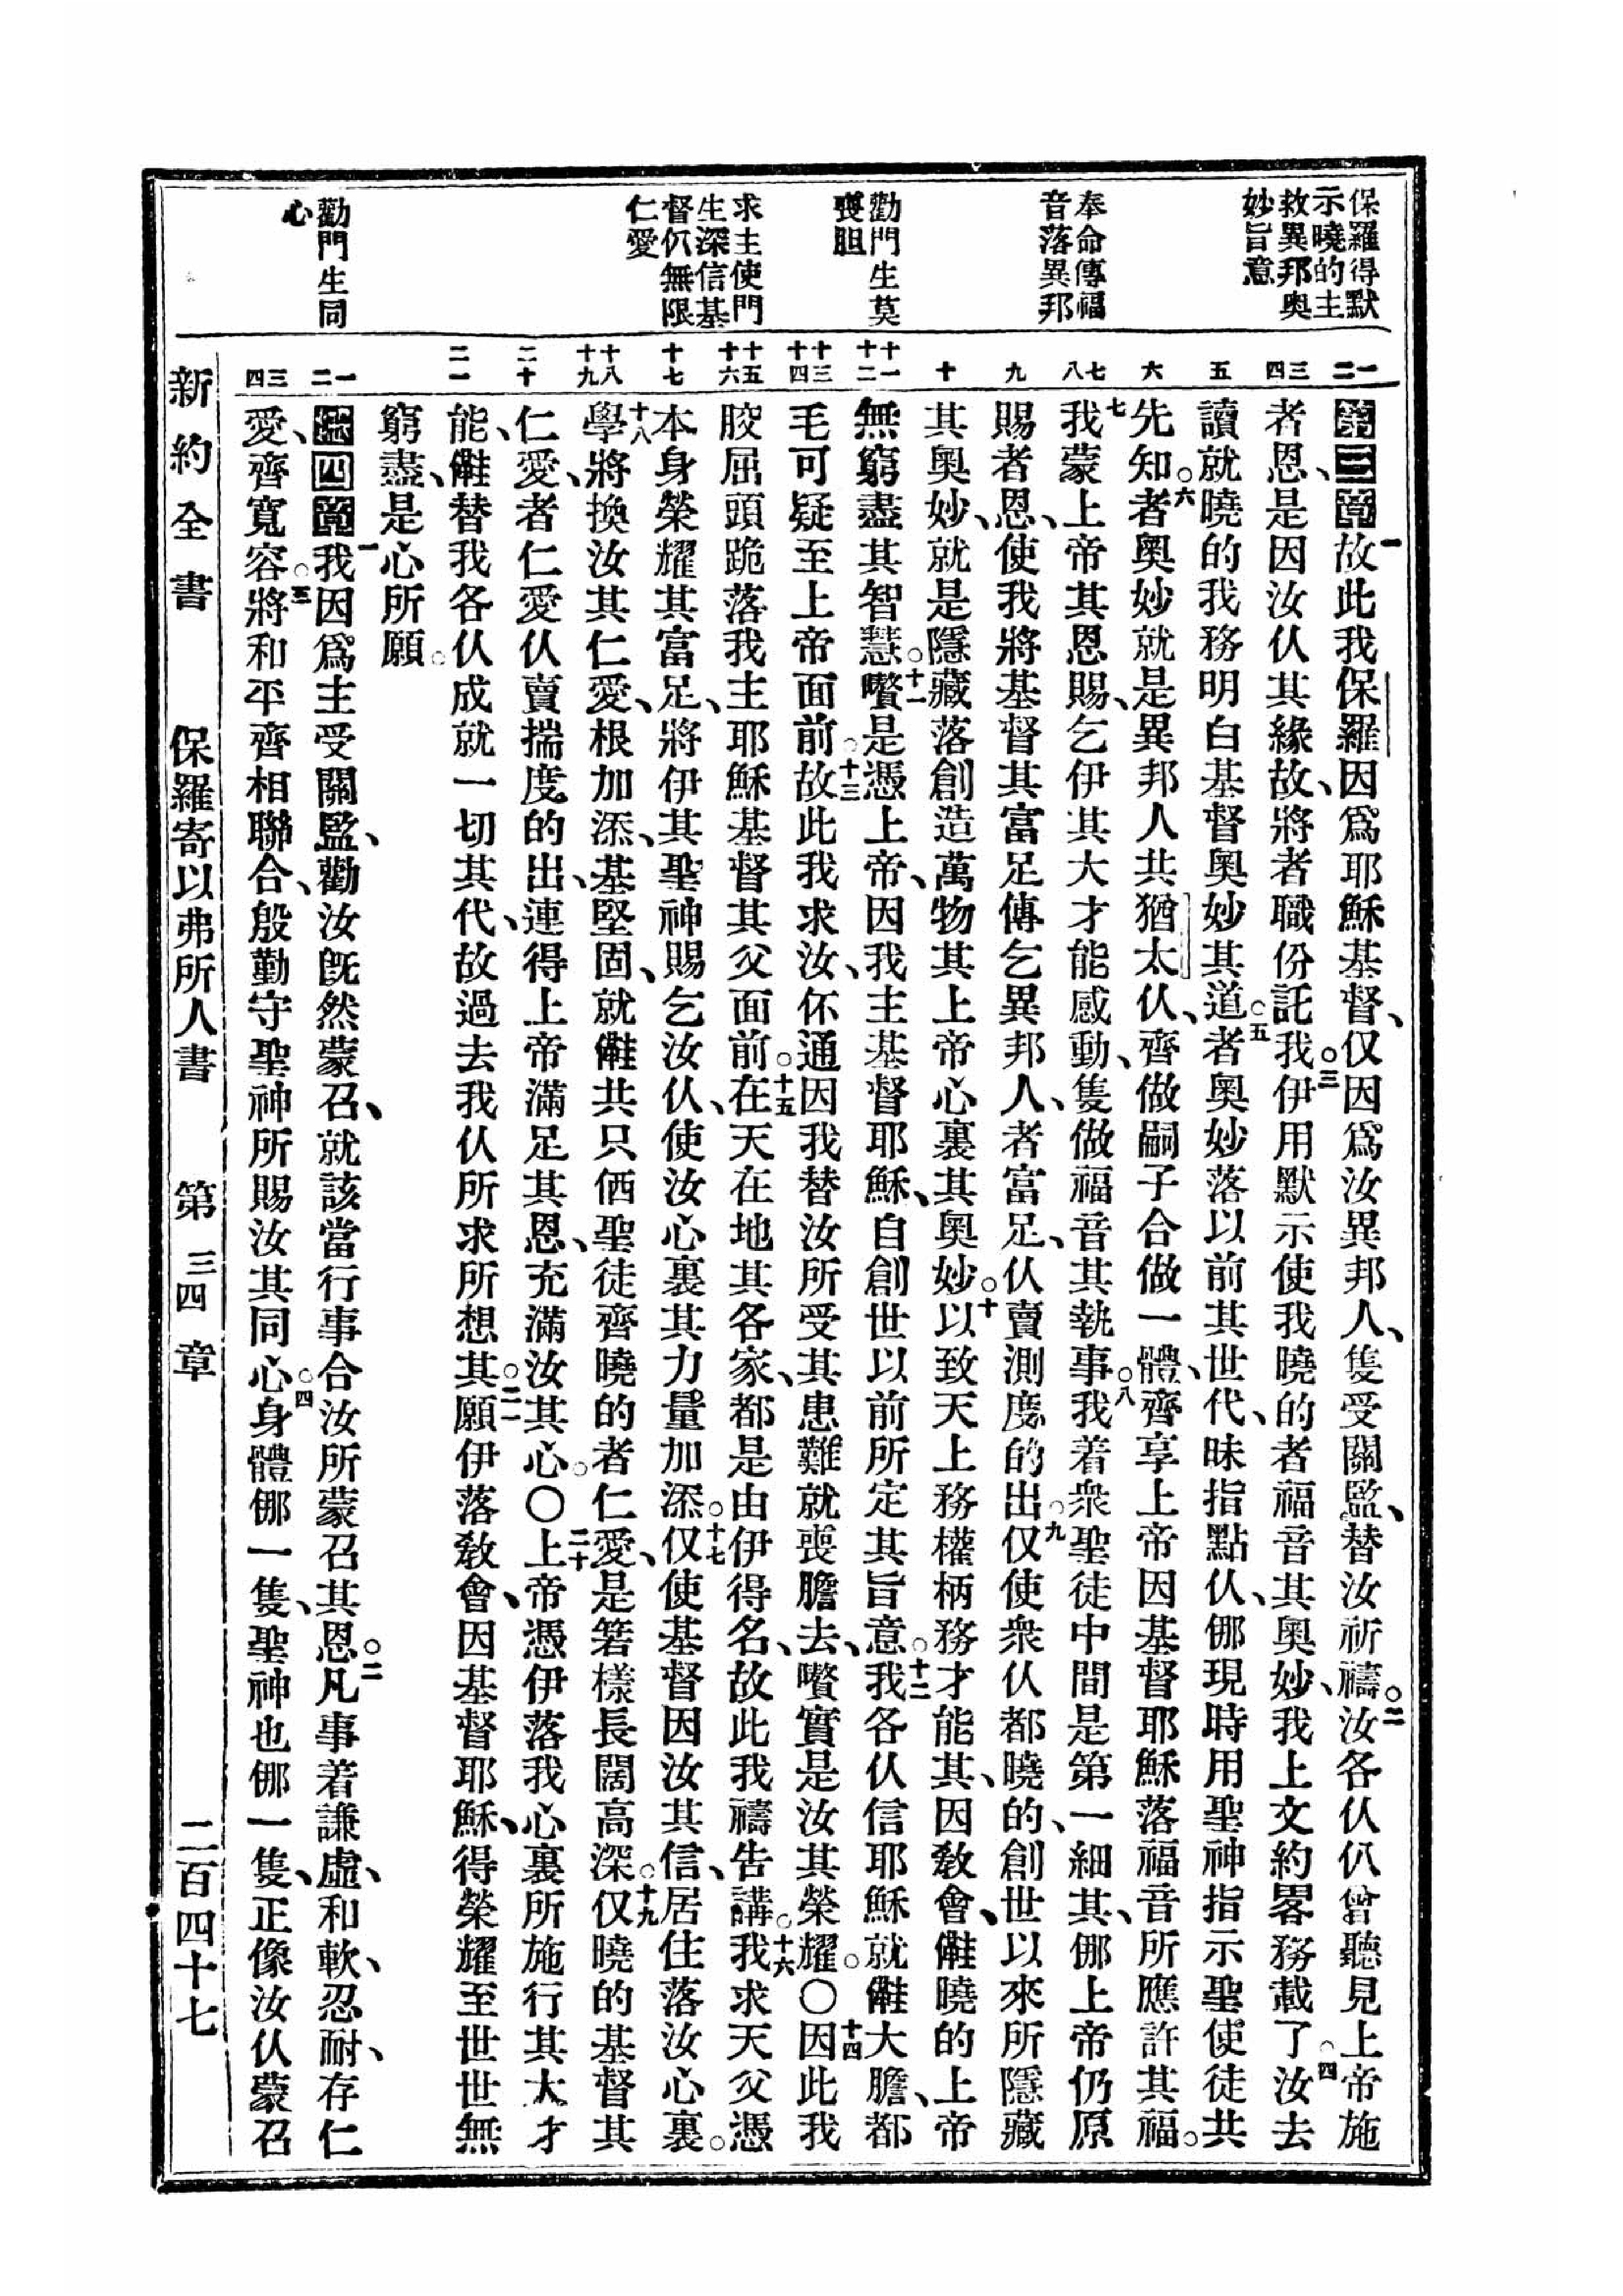 保羅得默
示曉的主
救異邦奧
妙旨意
奉命傳福
音落異邦
勸門生莫
喪胆
求主使門
生深信基
督仈無限
仁愛
勸門生同
心
一 二 三 四 五 六 七 八 九 十 十一 十二 十三 十四 十五 十六 十七 十八 十九 二十 二一 一 二 三 四
第三章一故此我保羅因爲耶穌基督、仅因爲汝異邦人、隻受關監、替汝祈禱。二汝各仈仈曾聽見上帝施
者恩、是因汝仈其緣故、將者職份託我。三伊用默示使我曉的者福音其奧妙、我上文約畧務載了。四汝去
讀就曉的我務明白基督奧妙其道。五者奧妙落以前其世代、昧指點仈、倻現時用聖神指示聖使徒共
先知。六者奧妙就是異邦人共猶太仈、齊做嗣子合做一體、齊享上帝因基督耶穌落福音所應許其福。
七我蒙上帝其恩賜、乞伊其大才能感動、隻做福音其執事。八我着衆聖徒中間是第一細其、倻上帝仍原
賜者恩、使我將基督其富足傳乞異邦人、者富足、仈賣測度的出。九仅使衆仈都曉的、創世以來所隱藏
其奧妙、就是隱藏落創造萬物其上帝心裏其奧妙。十以致天上務權柄務才能其、因教會、𠆧曉的上帝
無窮盡其智慧。十一囋是憑上帝、因我主基督耶穌、自創世以前所定其旨意。十二我各仈信耶穌就𠆧大膽、都
毛可疑至上帝面前。十三故此我求汝、伓通因我替汝所受其患難就喪膽去、囋實是汝其榮耀。〇十四因此我
腔屈頭跪落我主耶穌基督其父面前。十五在天在地其各家、都是由伊得名、故此我禱告講。十六我求天父憑
本身榮耀其富足、將伊其聖神賜乞汝仈、使汝心裏其力量加添。十七仅使基督因汝其信、居住落汝心裏。
十八學將換汝其仁愛、根加添、基堅固、就𠆧共只𠊎聖徒齊曉的者仁愛、是箬樣長闊高深。十九仅曉的基督其
仁愛、者仁愛仈賣揣度的出、連得上帝滿足其恩、充滿汝其心。〇二十上帝憑伊落我心裏所施行其大才
能、𠆧替我各仈成就一切其代、故過去我仈所求所想其。二一其願伊落教會、因基督耶穌、得榮耀至世世無
窮盡、是心所願。
第四章一我因爲主受關監、勸汝旣然蒙召、就該當行事合汝所蒙召其恩。二凡事着謙虛、和軟、忍耐、存仁
愛、齊寬容。三將和平齊相聯合、殷勤守聖神所賜汝其同心。四身體倻一隻、聖神也倻一隻、正像汝仈蒙召
新約全書 保羅寄以弗所人書 第三四章 二百四十七